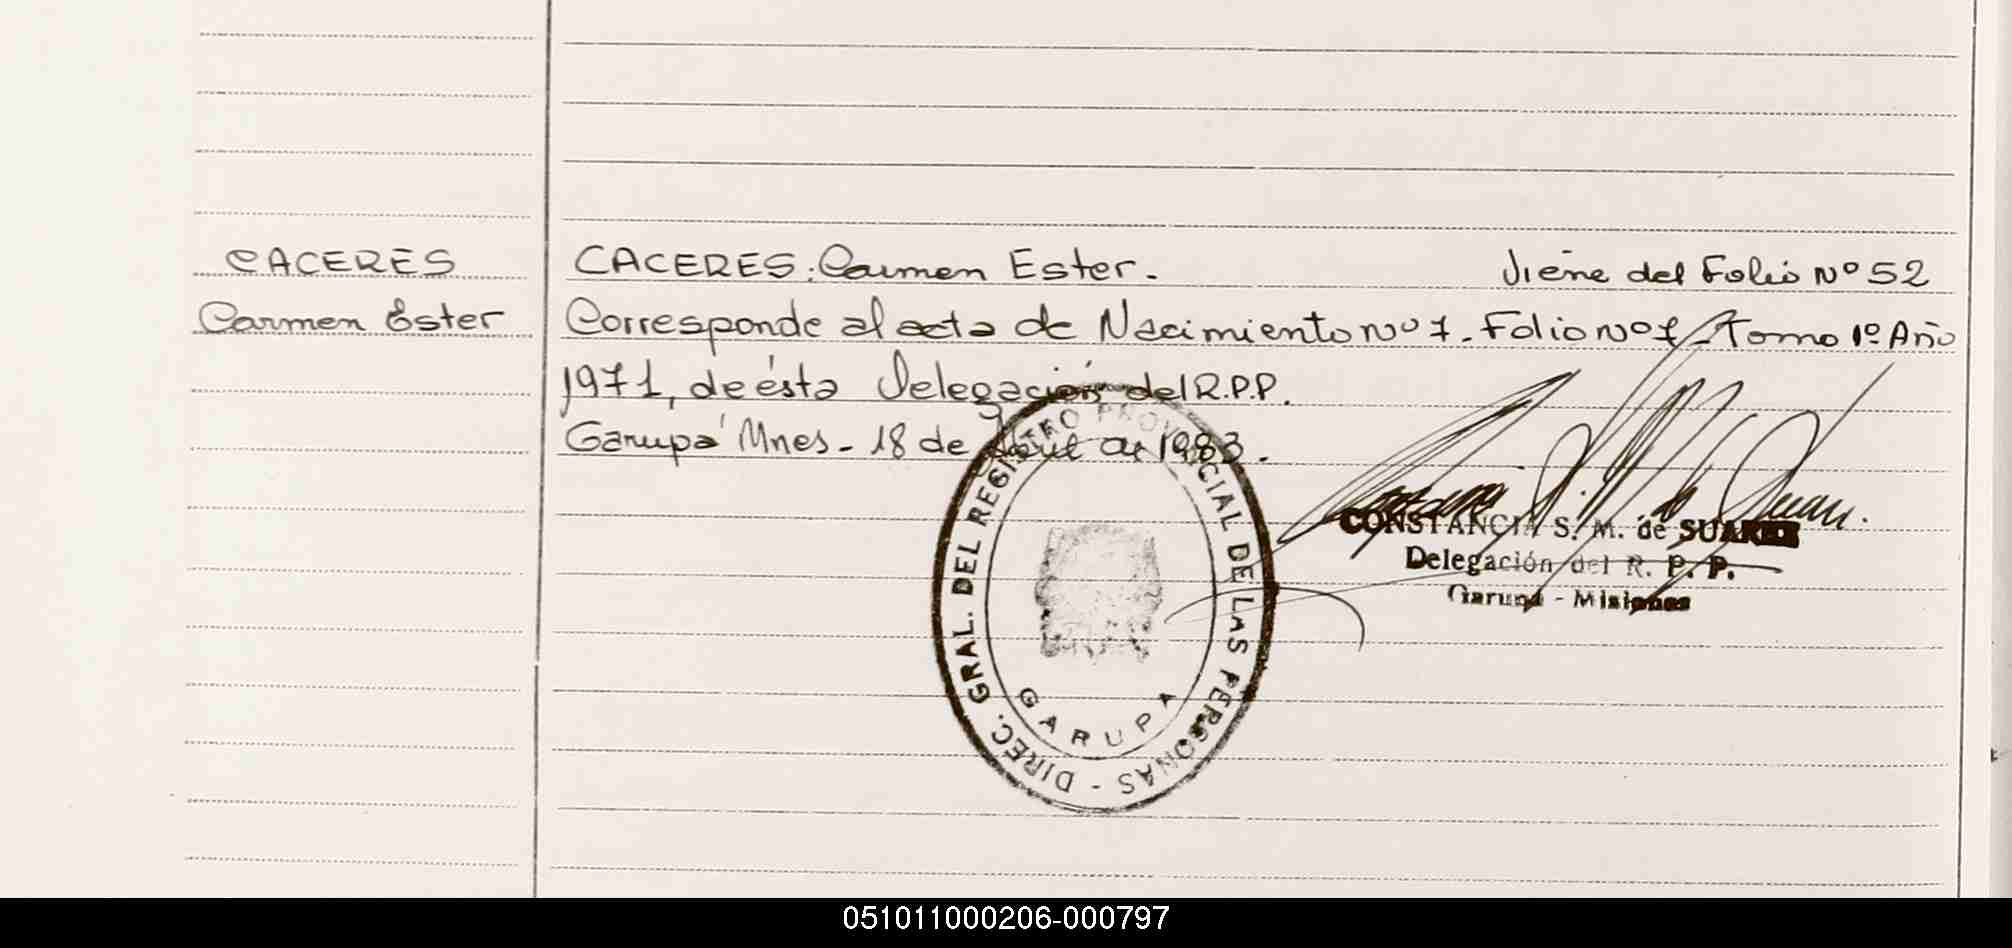 CACERES
Carmen Ester
CACERES: Carmen Ester. Viene del Folio Nº 52
Corresponde al acta de Nacimiento nº 7. Folio nº 7 - Tomo 1º Año
1971, de ésta Delegación del R.P.P.
Garupá Mnes - 18 de Abril de 1983.
DIREC. GRAL. DEL REGISTRO PROVINCIAL DE LAS PERSONAS -
GARUPA
CONSTANCIA S. M. de SUAREZ
Delegación del R. P. P.
Garupá - Misiones
051011000206-000797